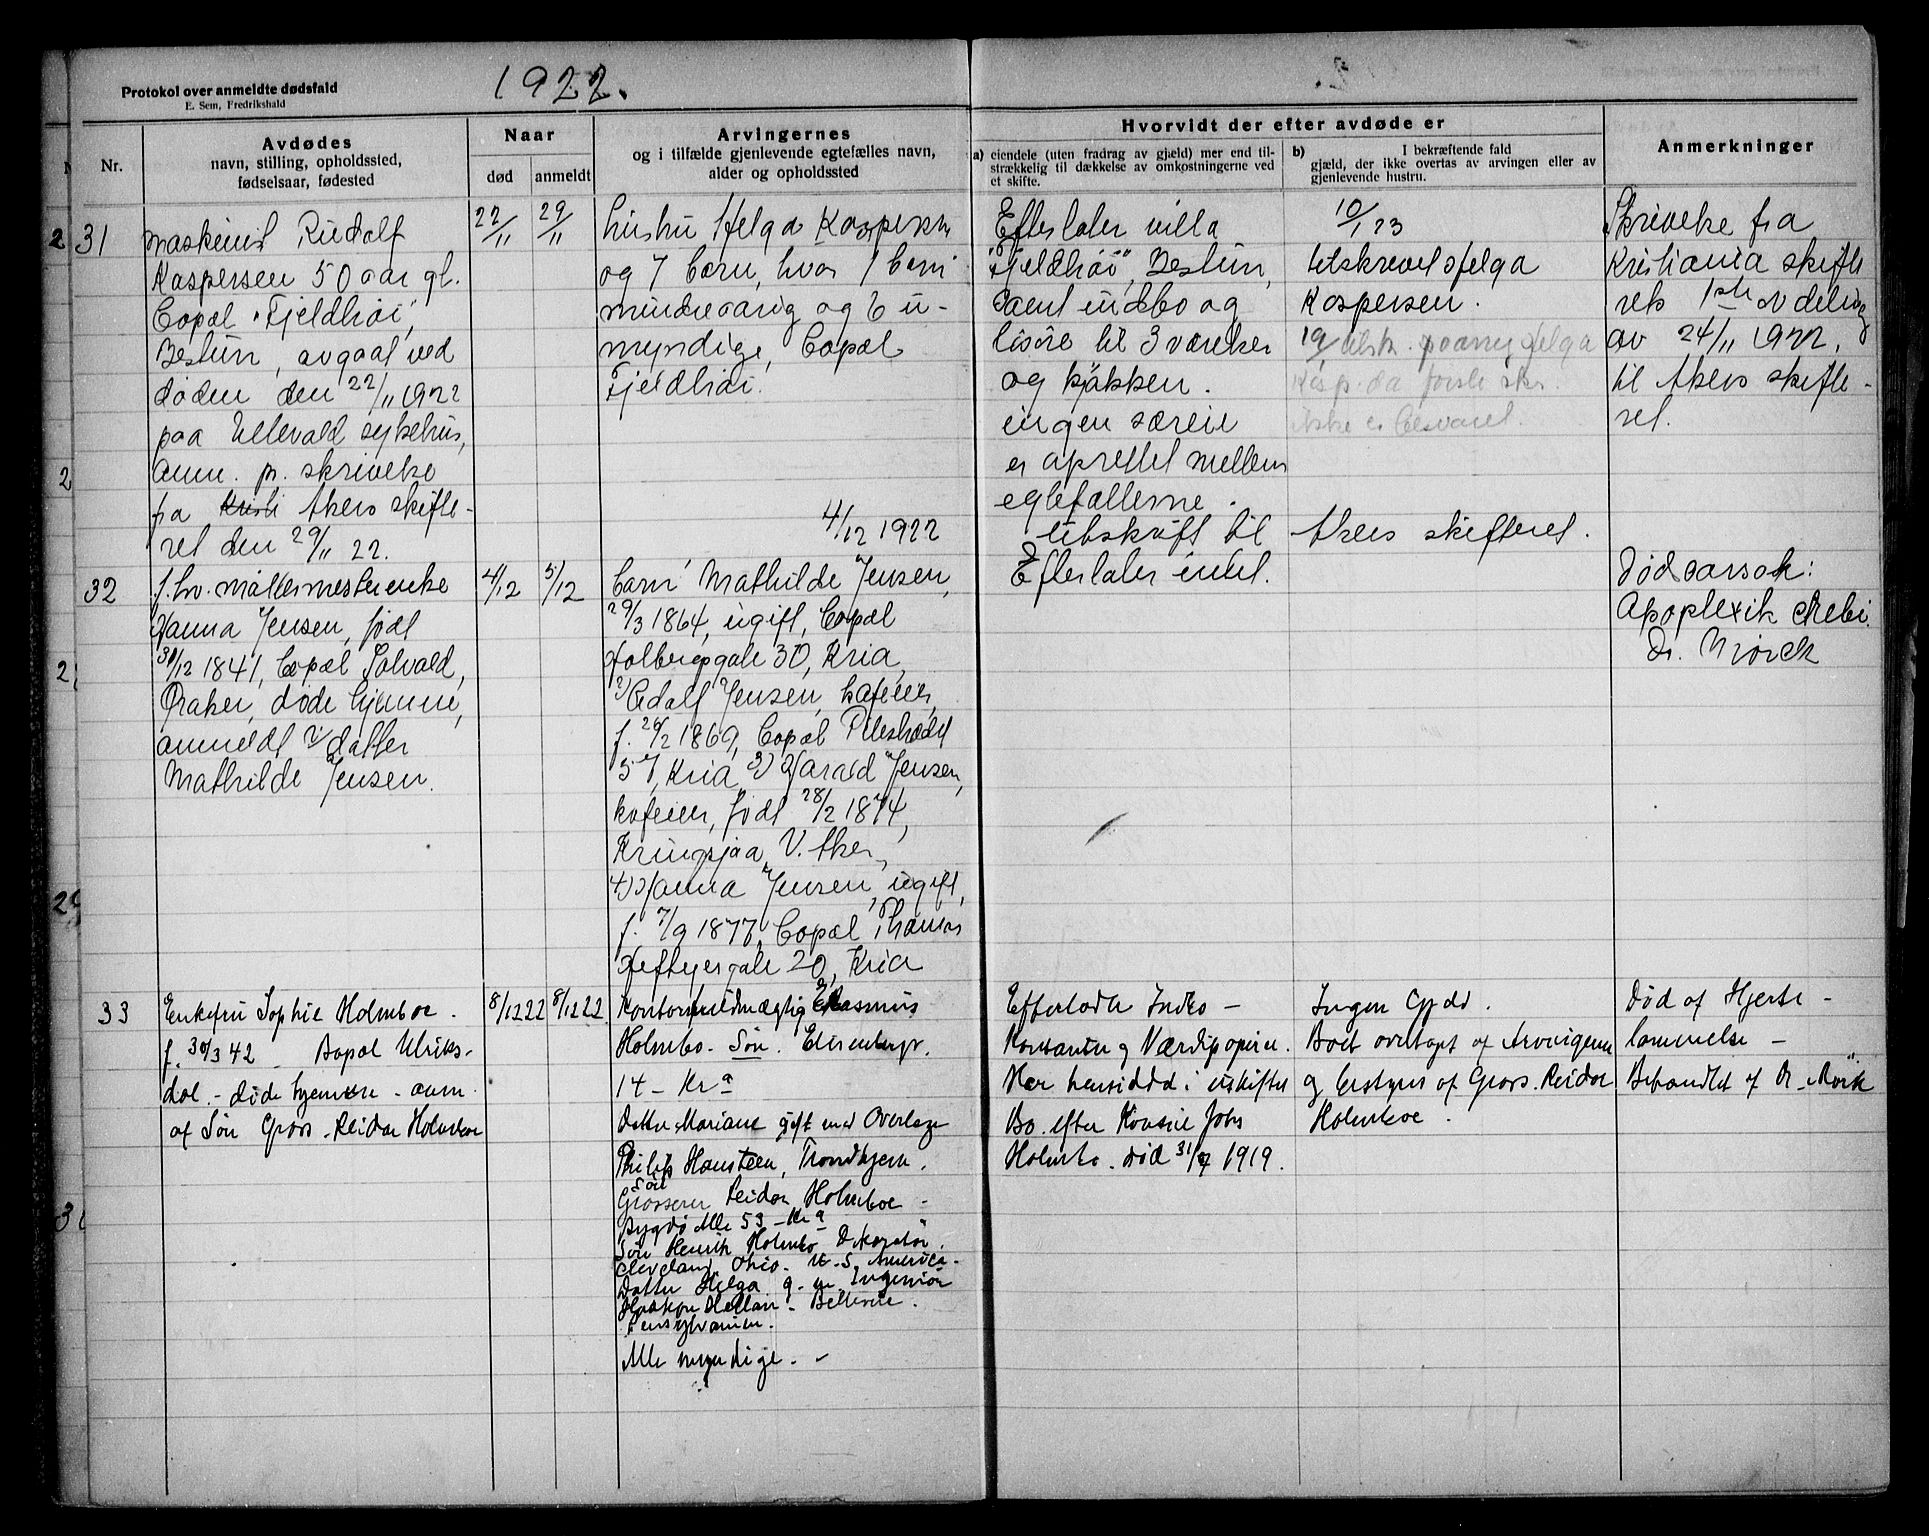 1922.
Protokol over anmeldte dødsfald
E. Sem, Fredrikshald
Nr.
Avdødes
navn, stilling, opholdssted,
fødselsaar, fødested
Naar
død
anmeldt
Arvingernes
og i tilfælde gjenlevende egtefælles navn,
alder og opholdssted
Hvorvidt der efter avdøde er
a) eiendele (uten fradrag av gjæld) mer end til-
strækkelig til dækkelse av omkostningerne ved
et skifte.
b) I bekræftende fald
gjæld, der ikke overtas av arvingen eller av
gjenlevende hustru.
Anmerkninger
31
maskinist Rudolf
Kaspersen 50 aar gl.
Bopæl "Fjeldhøi",
Bestun, avgaat ved
døden den 22/11 1922
paa Ullevald sykehus,
anm. pr. skrivelse
fra Kristi Akers skifte-
ret den 29/11 22.
22/11
29/11
hustru Helga Kaspersen
og 7 barn, hvor 1 barn
mindreaarig og 6 u-
myndige, Bopæl
Fjeldhøi.
4/12 1922
Efterlater villa
"Fjeldhøi", Bestun,
samt indbo og
løsøre til 3 værelser
og kjøkken.
ingen særeie
er oprettet mellem
egtefællerne.
utskrift til Akers skifteret.
10/1 23
tilskrevet Helga
Kaspersen.
19/ tilsk. paany Helga
Kasp. da første skr.
ikke er besvaret.
Skrivelse fra
Kristiania skifte
rets 1ste avdeling
av 24/11 1922,
til Akers skifte-
ret.
32
f. hv. malermesterenke
Hanna Jensen, født
30/12 1841, Bopæl Solvald,
Øraker, døde hjemme,
anmeldt v/ datter
Mathilde Jensen.
4/12
5/12
Barn Mathilde Jensen,
29/3 1864, ugift, Bopæl
Holbergsgate 30, Kria,
2) Adolf Jensen, kafeeier,
f. 26/2 1869, Bopæl Pilestrædet
57, Kria 3) Harald Jensen,
kafeeier, født 28/2 1874,
Kringsjaa, V. Aker,
4) Hanna Jensen, ugift,
f. 7/9 1877, Bopæl Thomas
Heftyesgate 20, Kria
Efterlater intet.
Dødsarsak:
Apoplexia cerebri
Dr. Mørck
33
Enkefru Sophie Holmboe.
f. 30/3 42 Bopæl Ulriks-
dal. - døde hjemme - anm.
af Søn Gros. Reidar Holmboe
8/12 22
8/12 22
Kontorfuldmægtig Rasmus
Holmbo - Søn. Elisenbergv.
14 - Kra
Datter Mariane gift med Overlæge
Philip Hansteen, Trondhjem.
Søn
Grosserer Reidar Holmboe -
Bygdø Alle 53 - Kra
Søn Henrik Holmbo Dekoratør.
Cleveland, Ohio. U.S. America.
Datter Helga g. m. Ingeniør
Haakon Hellan - Bellevue.
Pensylvanien.
Alle myndige. -
Efterlodt Indbo -
Kontanter og Værdipapirer.
Har hensiddd i uskiftet
Bo efter Konsul Johs
Holmbo. død 31/7 1919.
Ingen Gjæld.
Boet overtaget af Arvingerne
og bestyres af Gros. Reidar
Holmboe.
Død af Hjerte-
lammelse -
Behandlet af Dr. Mørk